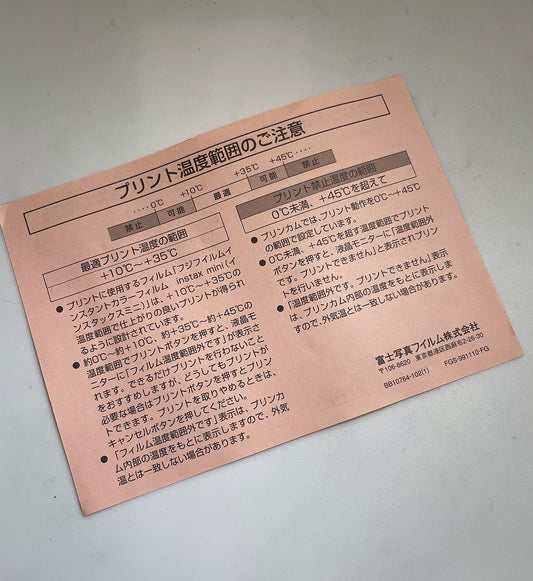 プリント温度範囲のご注意
‥‥0℃ +10℃ +35℃ +45℃‥‥
禁止 可能 最適 可能 禁止
最適プリント温度の範囲
+10℃〜+35℃
●プリントに使用するフィルム「フジフイルムイ
ンスタントカラーフィルム instax mini(イ
ンスタックスミニ)」は、+10℃〜+35℃の
温度範囲で仕上がりの良いプリントが得られ
るように設計されています。
●約0℃〜約+10℃、約+35℃〜約+45℃の
温度範囲でプリントボタンを押すと、液晶モ
ニターに「フィルム温度範囲外です」が表示さ
れます。できるだけプリントを行わないこと
をおすすめしますが、どうしてもプリントが
必要な場合はプリントボタンを押すとプリン
トできます。プリントを取りやめるときは、
キャンセルボタンを押してください。
●「フィルム温度範囲外です」表示は、プリンカ
ム内部の温度をもとに表示しますので、外気
温とは一致しない場合があります。
プリント禁止温度の範囲
0℃未満、+45℃を超えて
●プリンカムでは、プリント動作を0℃〜+45℃
の範囲で設定しています。
●0℃未満、+45℃を超す温度範囲でプリント
ボタンを押すと、液晶モニターに「温度範囲外
です。プリントできません」と表示されプリン
トを行いません。
●「温度範囲外です。プリントできません」表示
は、プリンカム内部の温度をもとに表示しま
すので、外気温とは一致しない場合があります。
富士写真フイルム株式会社
〒106-8620 東京都港区西麻布2-26-30
BB10764-102(1) FGS-991110-FG